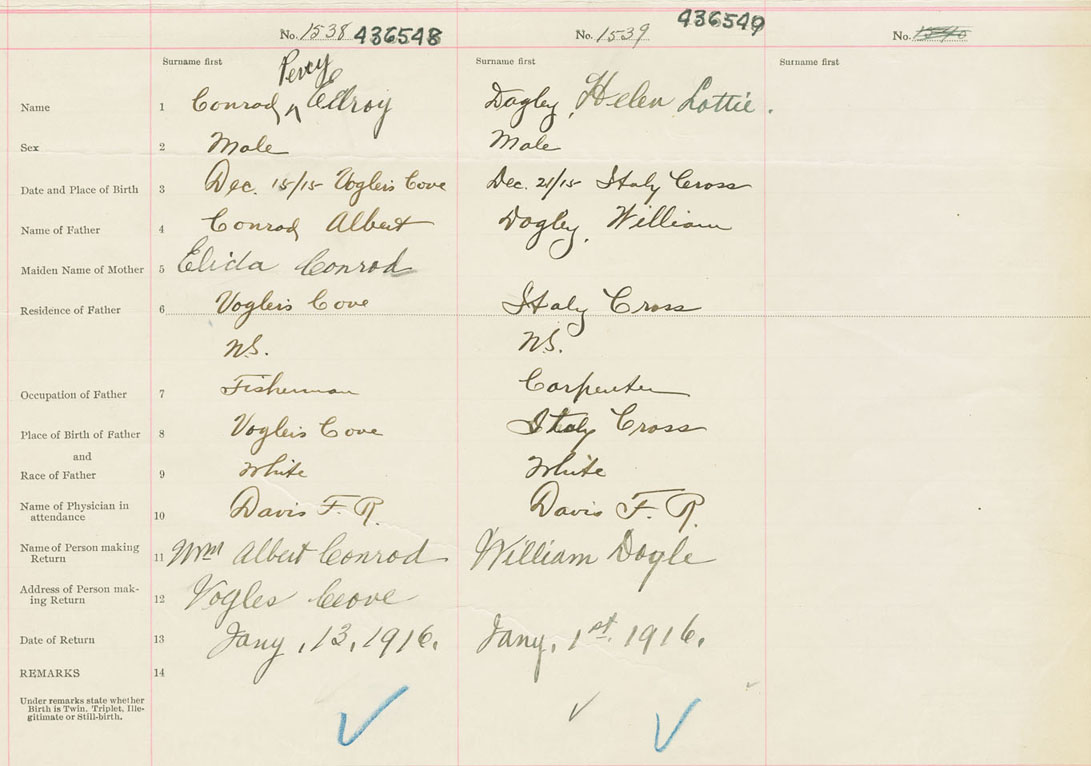 No. 1538 436548 No. 1539 436549 No. 1540
Surname first Surname first Surname first
Percy
Name 1 Conrad, Ellroy Dagley, Helen Lottie.
Sex 2 Male Male
Date and Place of Birth 3 Dec. 15/15 Voglers Cove Dec. 21/15 Italy Cross
Name of Father 4 Conrad Albert Dagley, William
Maiden Name of Mother 5 Elida Conrad
Residence of Father 6 Voglers Cove Italy Cross
N.S. N.S.
Occupation of Father 7 Fisherman Carpenter
Place of Birth of Father 8 Voglers Cove Italy Cross
and
Race of Father 9 White White
Name of Physician in
attendance 10 Davis F. R. Davis F. R.
Name of Person making
Return 11 Mrs Albert Conrad William Dagle
Address of Person mak-
ing Return 12 Vogles Cove
Date of Return 13 Jany, 13, 1916. Jany, 1st. 1916.
REMARKS 14
Under remarks state whether
Birth is Twin, Triplet, Ille-
gitimate or Still-birth.